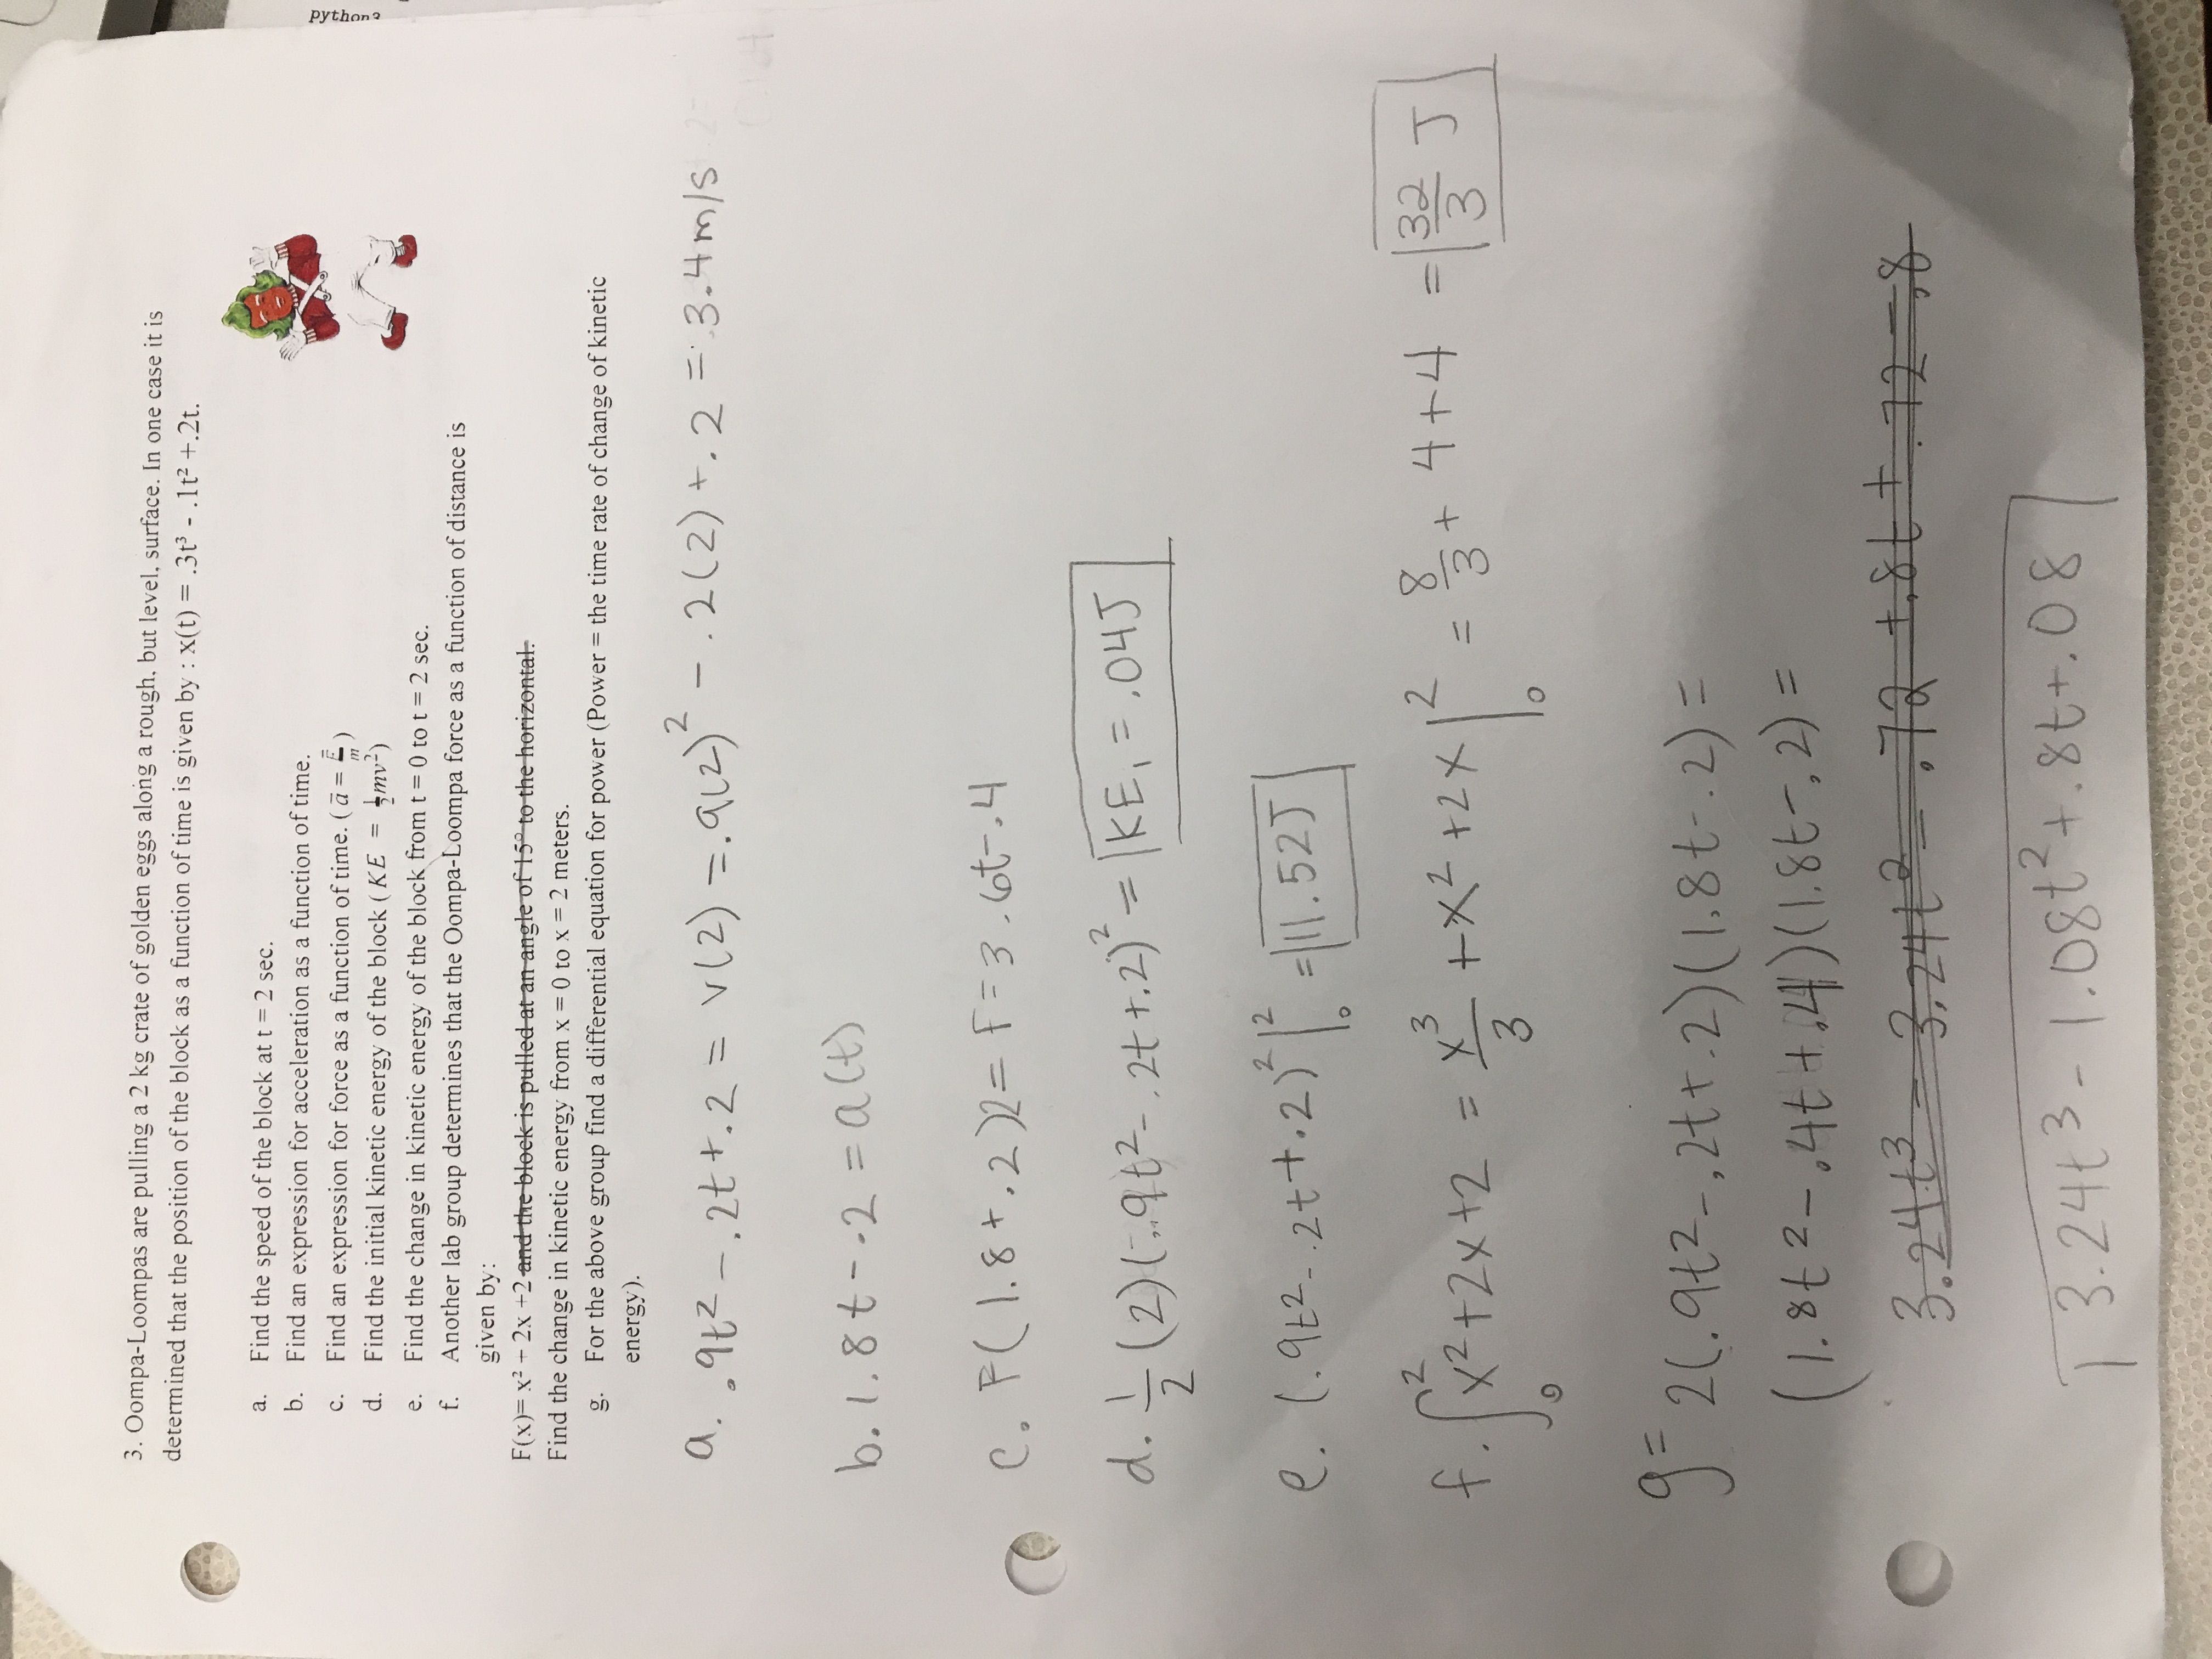 3. Oompa-Loompas are pulling a 2 kg crate of golden eggs along a rough, but level, surface. In one case it is
determined that the position of the block as a function of time is given by : x(t) = .3t³ - .1t² +.2t.
a. Find the speed of the block at t = 2 sec.
b. Find an expression for acceleration as a function of time.
c. Find an expression for force as a function of time. ( a̅ = F̅/m )
d. Find the initial kinetic energy of the block ( KE = ½mv²)
e. Find the change in kinetic energy of the block from t = 0 to t = 2 sec.
f. Another lab group determines that the Oompa-Loompa force as a function of distance is
given by:
F(x)= x² + 2x +2 and the block is pulled at an angle of 15° to the horizontal.
Find the change in kinetic energy from x = 0 to x = 2 meters.
g. For the above group find a differential equation for power (Power = the time rate of change of kinetic
energy).
python?
a. .9t² - .2t + .2 = v(2) = .9(2)² - .2(2) + .2 = 3.4 m/s
b. 1.8t - .2 = a(t)
c. F( 1.8 + .2 )2 = F = 3.6t - .4
d. 1/2 (2)(.9t² - .2t + .2)² = KE₁ = .04J
e. (.9t² - .2t + .2)² |₀² = 11.52J
f. ∫₀² x² + 2x + 2 = x³/3 + x² + 2x |₀² = 8/3 + 4 + 4 = 32/3 J
g = 2(.9t² - .2t + .2)(1.8t - .2) =
(1.8t² - .4t + .4)(1.8t - .2) =
3.24t³ - 3.24t² - .72 + .8t + .72 - .8
3.24t³ - 1.08t² + .8t + .08